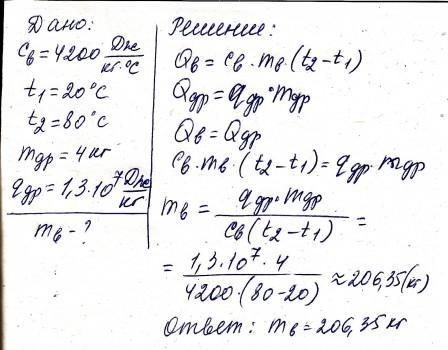 Дано:
cв = 4200 Дж/кг·°С
t1 = 20°С
t2 = 80°С
mдр = 4 кг
qдр = 1,3·10⁷ Дж/кг
mв - ?
Решение:
Qв = cв·mв·(t2-t1)
Qдр = qдр·mдр
Qв = Qдр
cв·mв·(t2-t1) = qдр·mдр
mв = qдр·mдр / cв(t2-t1) =
= 1,3·10⁷·4 / 4200·(80-20) ≈ 206,35(кг)
Ответ: mв = 206,35 кг